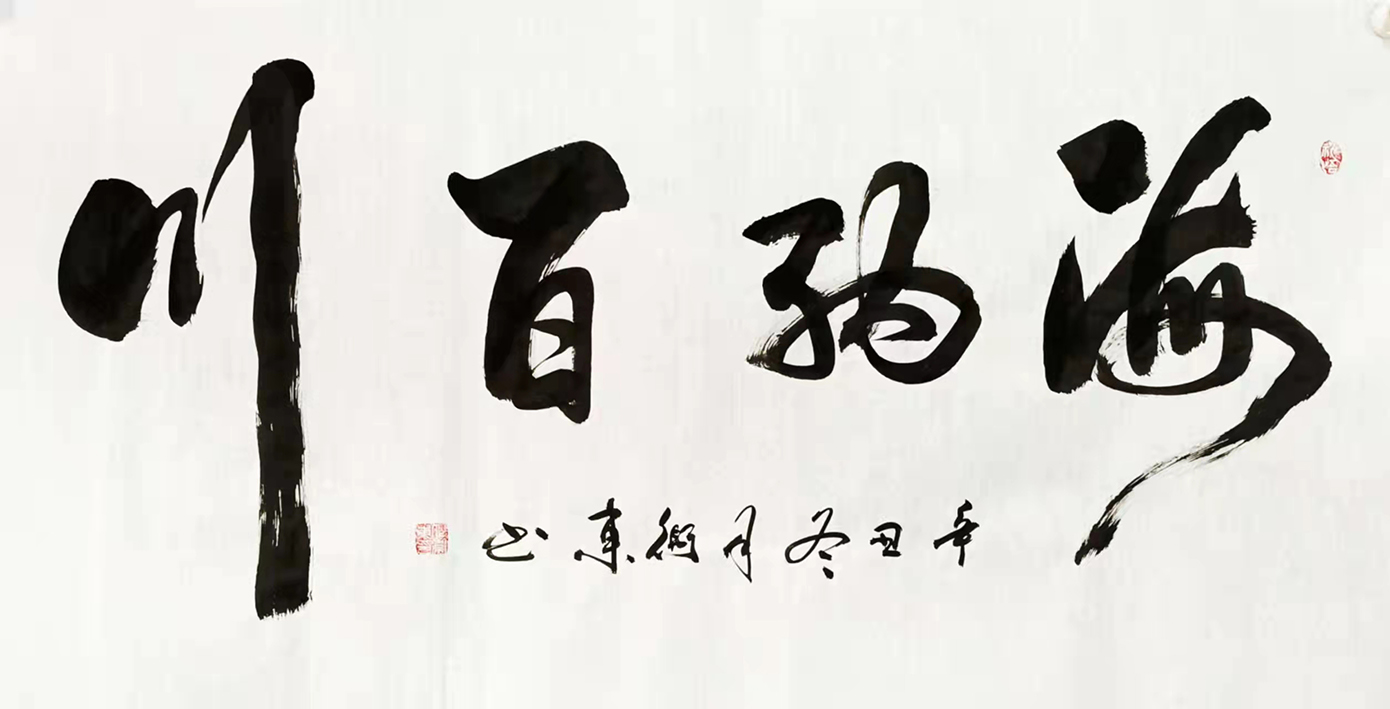 海纳百川
辛丑冬月衛東书